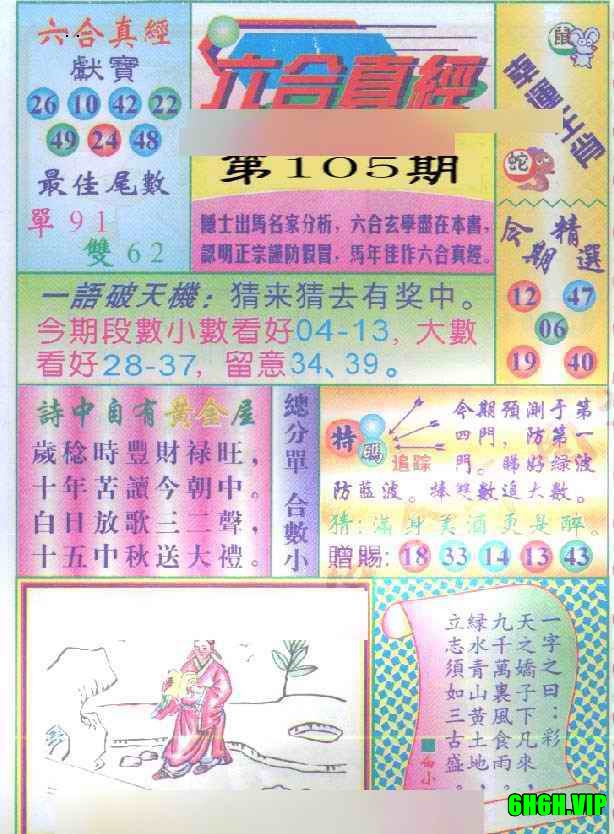 六合真經
獻寶
26 10 42 22
49 24 48
最佳尾數
單 9 1
雙 6 2
六合真經
第105期
隱士出馬名家分析，六合玄學盡在本書，
認明正宗謹防假冒，馬年佳作六合真經。
鼠
幸運生肖
蛇
今期精選
12 47
06
19 40
一語破天機：猜来猜去有奖中。
今期段數小數看好04-13，大數
看好28-37，留意34、39。
詩中自有黄金屋
歲稔時豐財禄旺，
十年苦讀今朝中。
白日放歌三二聲，
十五中秋送大禮。
總分單 合數小
特码
追踪
今期預測于第
四門，防第一
門。睇好绿波
防蓝波。捧雙數追大數。
猜：滿身美酒更是醉。
贈賜：18 33 14 13 43
一字之曰：彩
天之嬌子下凡來，
九千萬裏風食雨。
緑水青山黄土地，
立志須如三古盛。
6H6H.VIP